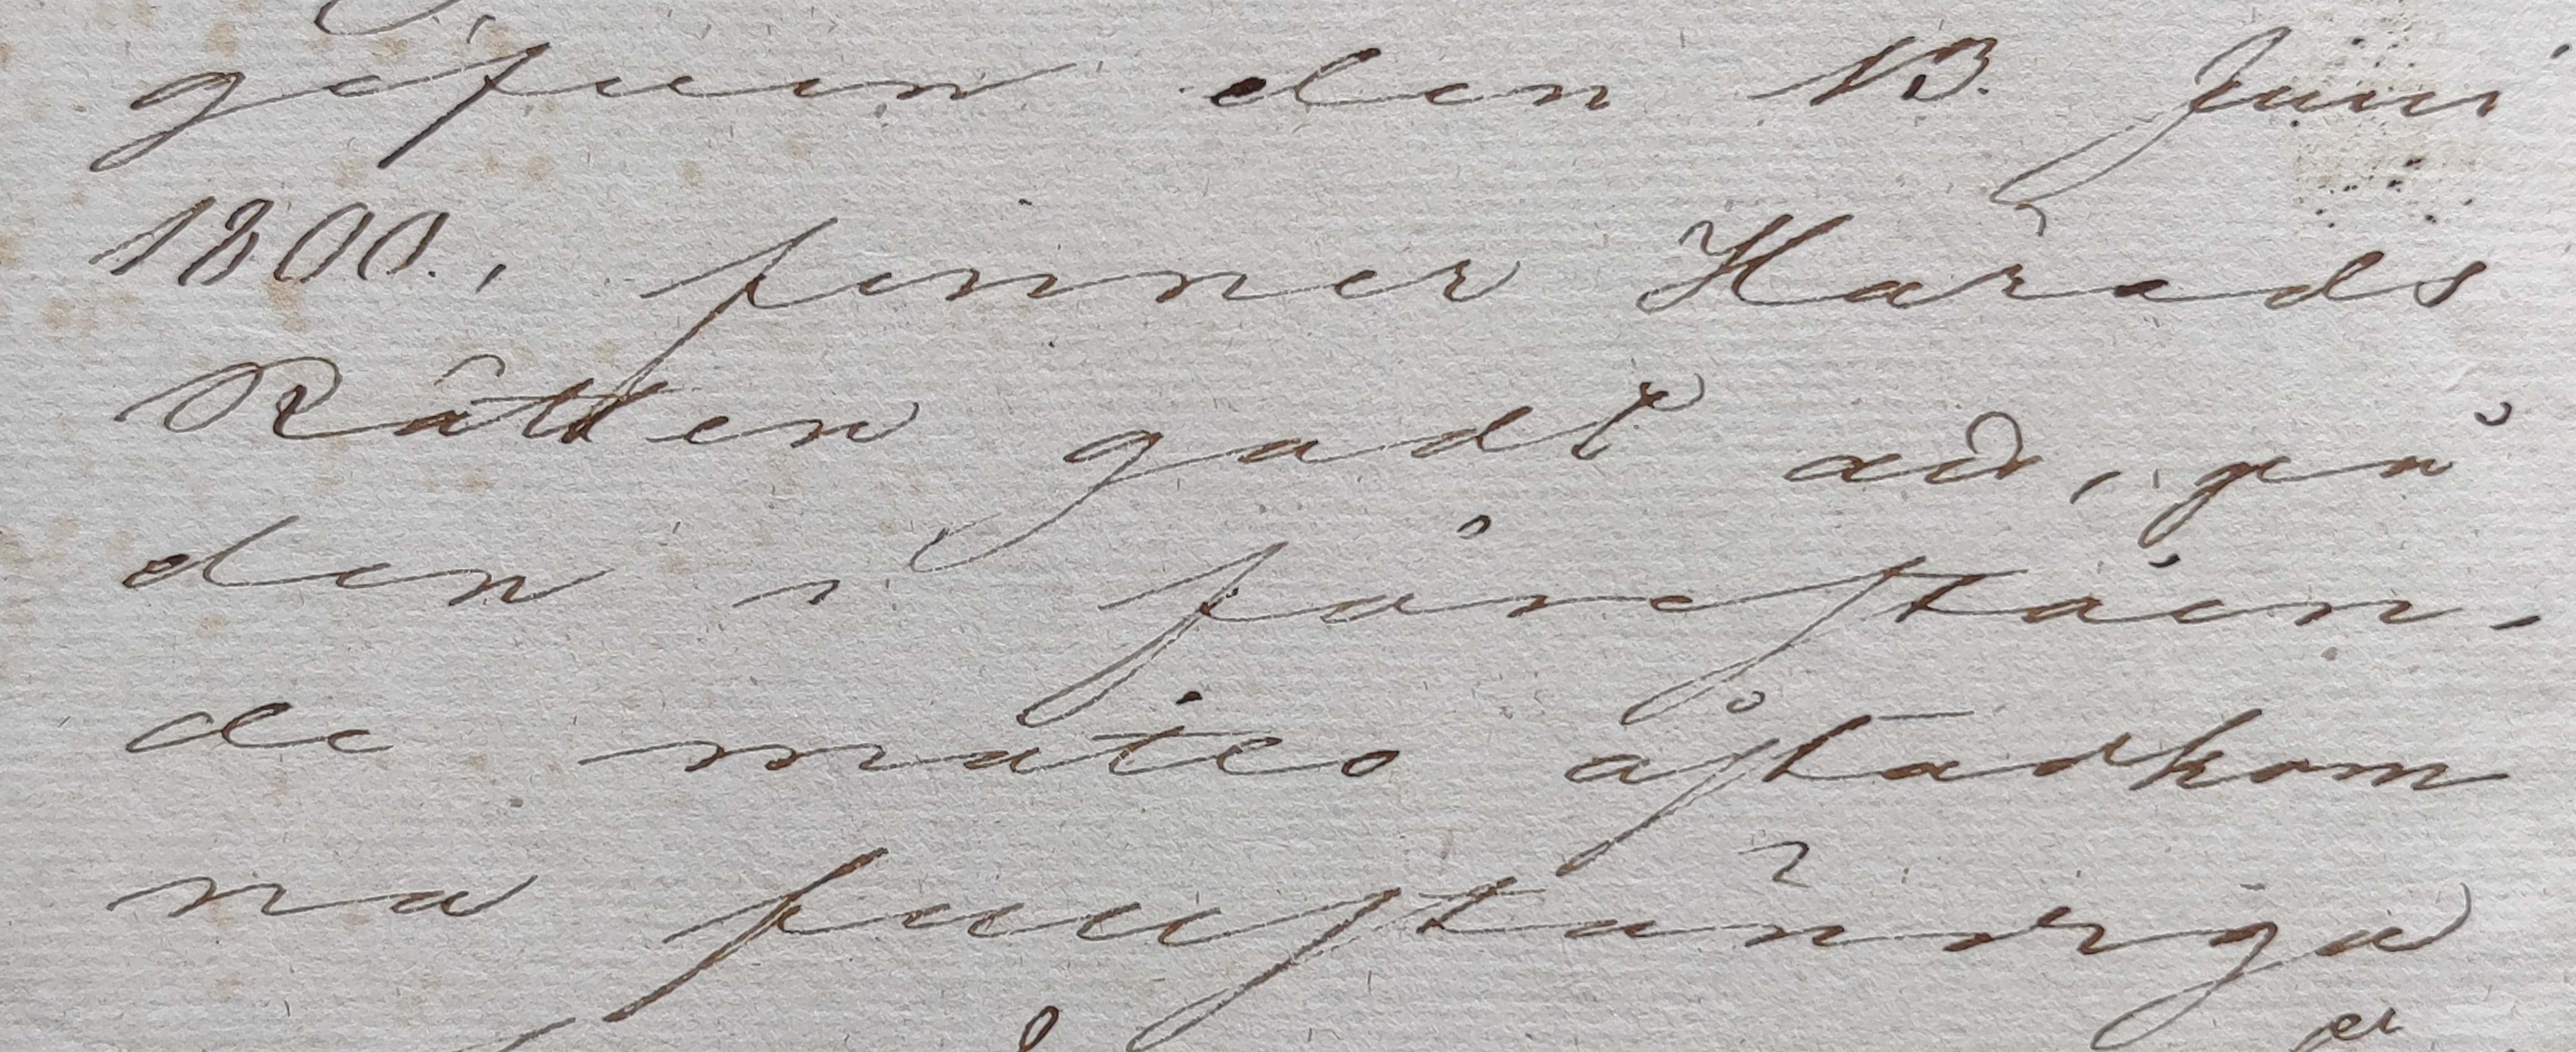 gifven den 13. Juni
1800., finner Härads
Rätten godt att, på
den i föreståen-
de måtto åstadkom
na fullständiga